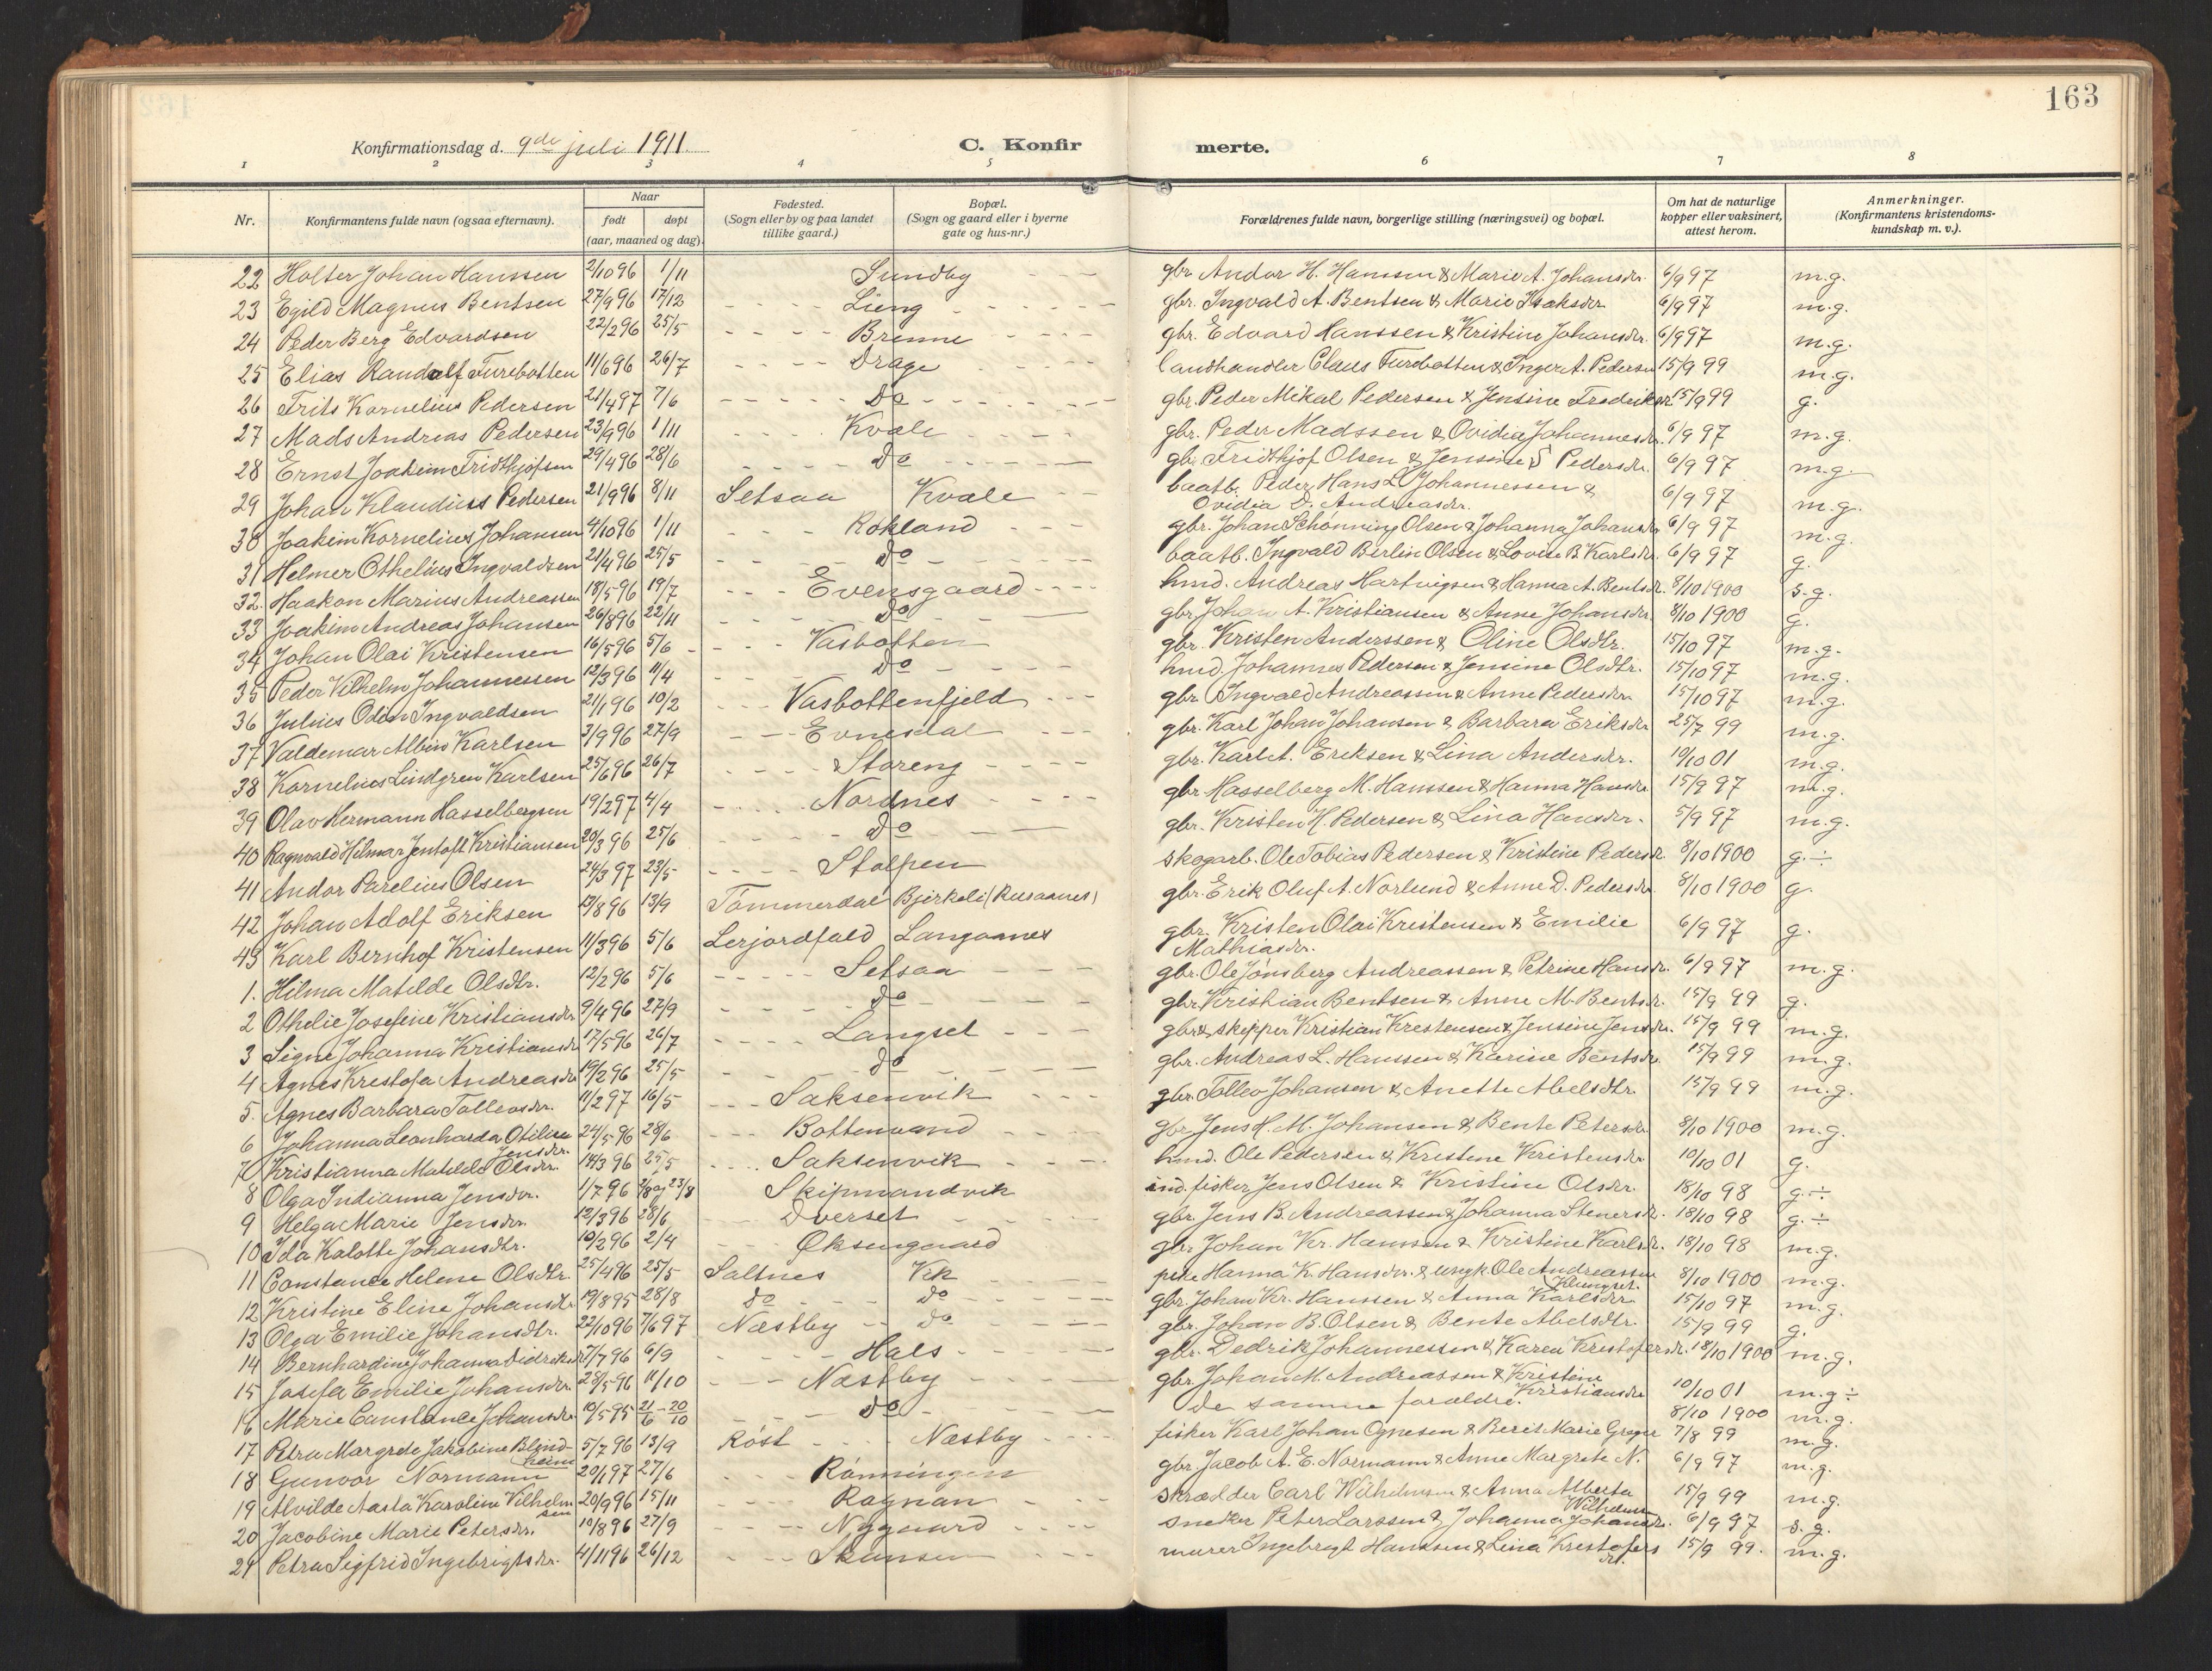 163
Konfirmationsdag d. 9de juli 1911. C. Konfirmerte.
1 2 3 4 5 6 7 8
Nr. Konfirmantens fulde navn (ogsaa efternavn). Naar født døpt (aar, maaned og dag). Fødested. (Sogn eller by og paa landet tillike gaard.) Bopæl. (Sogn og gaard eller i byerne gate og hus-nr.) Forældrenes fulde navn, borgerlige stilling (næringsvei) og bopæl. Om hat de naturlige kopper eller vaksinert, attest herom. Anmerkninger. (Konfirmantens kristendomskundskap m. v.).
22 Holter Johan Hanssen 2/10 96 1/11 Sundby gbr. Andor H. Hanssen & Marie A. Johansdr. 6/9 97 m.g.
23 Egild Magnus Bentsen 27/9 96 17/12 Lieng gbr. Ingvald A. Bentsen & Marie Isaksdr. 6/9 97 m.g.
24 Peder Berg Edvardsen 22/2 96 25/5 Brenne gbr. Edvard Hanssen & Kristine Johansdr. 6/9 97 m.g.
25 Elias Randolf Furebotten 11/6 96 26/7 Drage landhandler Claus Furebotten & Inger A. Pedersen 15/9 99 m.g.
26 Frits Kornelius Pedersen 21/4 97 7/6 Do gbr. Peder Mikal Pedersen & Jensine Fredriksdr. 15/9 99 g.
27 Mads Andreas Pedersen 23/9 96 1/11 Kvæle gbr. Peder Madssen & Ovidia Johannesdr. 6/9 97 m.g.
28 Ernst Joakim Fridthjofsen 29/4 96 28/6 Do gbr. Fridthjof Olsen & Jensine S Pedersdr. 6/9 97 m.g.
29 Johan Klaudius Pedersen 21/9 96 8/11 Setsaa Kvæle baatb. Peder Hans L Johannessen & Ovidia D. Andreasdr. 6/9 97 m.g.
30 Joakim Kornelius Johansen 4/10 96 1/11 Rokland gbr. Johan Schønning Olsen & Johanna Johansdr. 6/9 97 m.g.
31 Helmer Othelius Ingvaldsen 21/4 96 25/5 Do baatb. Ingvald Berlin Olsen & Lovise B Karlsdr. 6/9 97 g.
32. Haakon Marius Andreassen 18/5 96 19/7 Evensgaard hmd. Andreas Hartvigsen & Hanna A. Bentsdr. 8/10 1900 s.g.
33 Joakim Andreas Johansen 26/8 96 22/11 Do gbr. Johan A. Kristiansen & Anne Johansdr. 8/10 1900 g.
34 Johan Olai Kristensen 16/5 96 5/6 Vasbotten gbr. Kristen Anderssen & Oline Olsdtr. 15/10 97 m.g.
35 Peder Vilhelm Johannessen 12/3 96 11/4 Do hmd. Johannes Pedersen & Jensine Olsdtr. 15/10 97 m.g.
36 Julius Odin Ingvaldsen 21/1 96 10/2 Vasbottenfjeld gbr. Ingvald Andreassen & Anne Pedersdr. 15/10 97 m.g.
37 Valdemar Albin Karlsen 3/9 96 27/9 Evnesdal gbr. Karl Johan Johansen & Barbara Eriksdr. 25/7 99 m.g.
38 Kornelius Lindgren Karlsen 25/6 96 26/7 Storeng gbr. Karl A. Eriksen & Lina Andersdr. 10/10 01 m.g.
39 Olav Hermann Hasselbergsen 19/2 97 4/4 Nordnes gbr. Hasselberg M. Hanssen & Hanna Hansdr. 15/9 97 m.g.
40 Ragnvald Hilmar Jentoft Kristiansen 20/3 96 25/6 Do gbr. Kristen H. Pedersen & Lina Hansdr. 5/9 97 m.g.
41 Andor Parelius Olsen 24/3 97 23/5 Stolpen skogarb. Ole Tobias Pedersen & Kristine Pedersdr. 8/10 1900 g.÷
42 Johan Adolf Eriksen 13/8 96 13/9 Tømmerdal Bjerkeli (Rusaanes) gbr. Erik Oluf A. Norlund & Anne D. Pedersdr. 8/10 1900 g.
43 Karl Bernhof Kristensen 11/3 96 5/6 Lerjordfald Langaanes gbr. Kristen Olai Kristensen & Emilie Mathiasdr. 6/9 97 g.
1. Hilma Matilde Olsdtr. 12/2 96 5/6 Setsaa gbr. Ole Jønsberg Andreassen & Petrine Hansdr. 6/9 97 m.g.
2 Othelie Josefine Kristiansdr. 9/4 96 27/9 Do gbr. Kristian Bentsen & Anne M. Bentsdr. 15/9 99 g.
3 Signe Johanna Kristiansdr. 17/5 96 26/7 Langset gbr. & skipper Kristian Kristensen & Jensine Jensdr. 15/9 99 m.g.
4 Agnes Krestofa Andreasdr. 19/2 96 25/5 Do gbr. Andreas L. Hanssen & Karine Bentsdr. 15/9 99 m.g.
5. Agnes Barbara Tollevsdr. 11/2 97 16/5 Saksenvik gbr. Tollev Johansen & Anette Abelsdtr. 15/9 99 m.g.
6 Johanna Leonharda Otilie Jensdr. 24/5 96 28/6 Bottenvand gbr. Jens H. M. Johansen & Bente Petersdr. 8/10 1900 m.g.
7 Kristianna Matilde Olsdr. 14/3 96 25/5 Saksenvik hmd. Ole Pedersen & Kristine Kristensdr. 10/10 01 g.
8 Olga Indianna Jensdr. 1/7 96 2/8 og 23/8 Skipmandvik ind. fisker Jens Olsen & Kristine Olsdr. 18/10 98 g.÷
9 Helga Marie Jensdr. 12/3 96 28/6 Dverset gbr. Jens B. Andreassen & Johanna Stenersdr. 18/10 98 g.÷
10 Ida Kalotte Johansdtr. 10/2 96 2/4 Øksengaard gbr. Johan Kr. Hanssen & Kristine Karlsdr. 18/10 98 m.g.
11 Constance Helene Olsdtr. 25/4 96 25/5 Saltnes Vik pike Hanna K. Hansdr. & ungk. Ole Andreassen Klungset. 8/10 1900 m.g.
12 Kristine Eline Johansdr. 19/8 95 28/8 Do Do gbr. Johan Kr. Hanssen & Anna Karlsdr. 15/10 97 m.g.
13 Olga Emilie Johansdtr. 22/10 96 7/6 97 Næstby Do gbr. Johan B. Olsen & Bente Abelsdtr. 15/9 99 g.
14 Bernhardine Johanna Didriksdr. 27/7 96 6/9 Hals gbr. Dedrik Johannessen & Karen Kristofersdr. 18/10 1900 m.g.
15 Josefa Emilie Johansdr. 28/5 96 11/10 Næstby gbr. Johan M. Andreassen & Kristine Kristiansdr. 10/10 01 m.g÷
16 Marie Constance Johansdr. 10/5 95 21/6 - 20/10 Do De samme forældre. 8/10 1900 m.g.
17 Petra Margrete Jakobine Blindheim 5/7 96 13/9 Røst Næstby fisker Karl Johan Ognesen & Berit Marie 7/8 99 m.g.
18 Gunvor Normann 20/1 97 27/6 Rønningen gbr. Jacob A. E. Normann & Anne Margrete N. 6/9 97 m.g.
19 Alvilde Aasta Karoline Vilhelmsen 20/9 96 15/11 Rognan skrædder Carl Wilhelmsen & Anna Alberta Wilhelmsen 15/9 99 m.g.
20 Jacobine Marie Petersdr. 10/8 96 27/9 Nygaard snedker Peter Larssen & Johanna Johansdr. 6/9 97 s.g.
21 Petra Sigfrid Ingebrigtsdr. 4/11 96 26/12 Skansen murer Ingebrigt Hanssen & Lina Kristofersdr. 15/9 99. m.g.